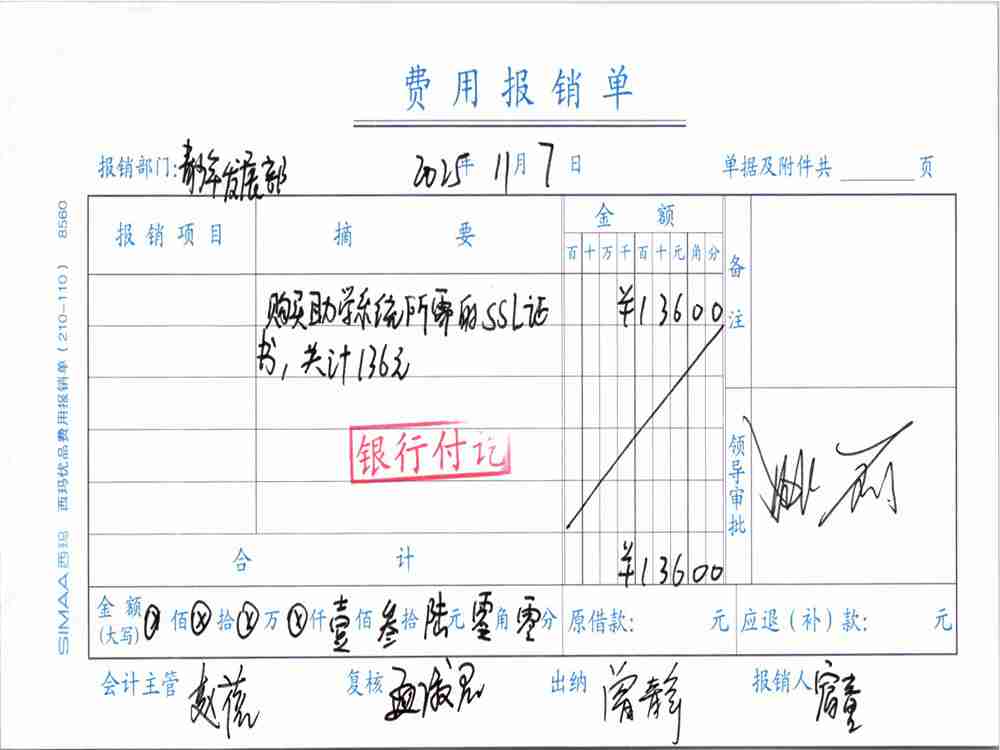 费用报销单
报销部门:青年发展部 2025年 11月 7日 单据及附件共 页
报销项目 摘要 金额 备注
百十万千百十元角分
购买助学系统所需的SSL证 ¥13600
书,共计136元
银行付讫
领导审批
合计 ¥13600
金额(大写)ⓧ佰ⓧ拾ⓧ万ⓧ仟壹佰叁拾陆元零角零分 原借款: 元 应退(补)款: 元
会计主管 赵蓓 复核 出纳 曾静 报销人
SIMAA西玛 西玛优品费用报销单(210-110) 8560